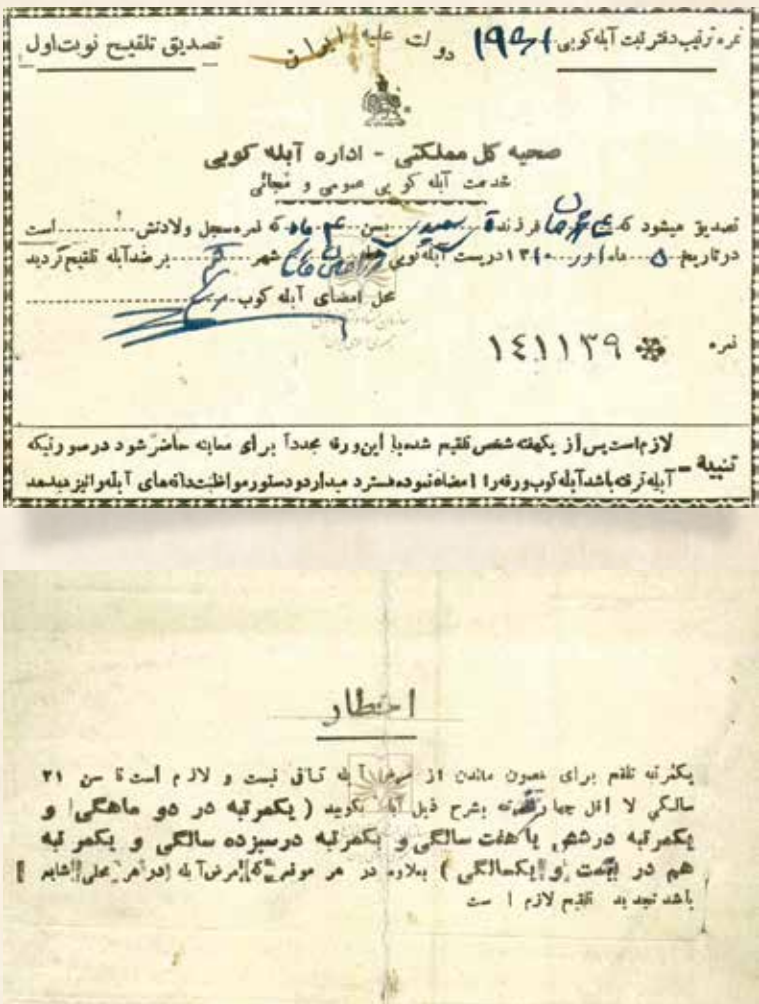 نمره ترتیب دفتر ثبت آبله کوبی
دولت علیه ایران
تصدیق تلقیح نوبت اول
صحیه کل مملکتی - اداره آبله کوبی
خدمت آبله کوبی عمومی و مجانی
تصدیق میشود که فرزند بسن ۴ ماه که نمره سجل ولادتش است
در تاریخ ۵ ماه ۱۳۱۰ در پست آبله کوبی شهر بر ضد آبله تلقیح گردید
محل امضای آبله کوب
نمره ۱۴۱۱۳۹
تنبیه - لازم است پس از یکهفته شخص تلقیح شده با این ورقه مجدداً برای معاینه حاضر شود در صورتیکه
آبله گرفته باشد آبله کوب ورقه را امضاء نموده مسترد میدارد و دستور مواظبت دانه های آبله را نیز میدهد
اخطار
یکمرتبه تلقیح برای مصون ماندن از مرض آبله کافی نیست و لازم است تا سن ۲۱
سالگی لا اقل چهار مرتبه بشرح ذیل آبله بکوبید ( یکمرتبه در دو ماهگی و
یکمرتبه در شش یا هفت سالگی و یکمرتبه در سیزده سالگی و یکمرتبه
هم در بیست و یکسالگی ) بعلاوه در هر موقع که مرض آبله در هر محلی شایع
باشد تجدید تلقیح لازم است